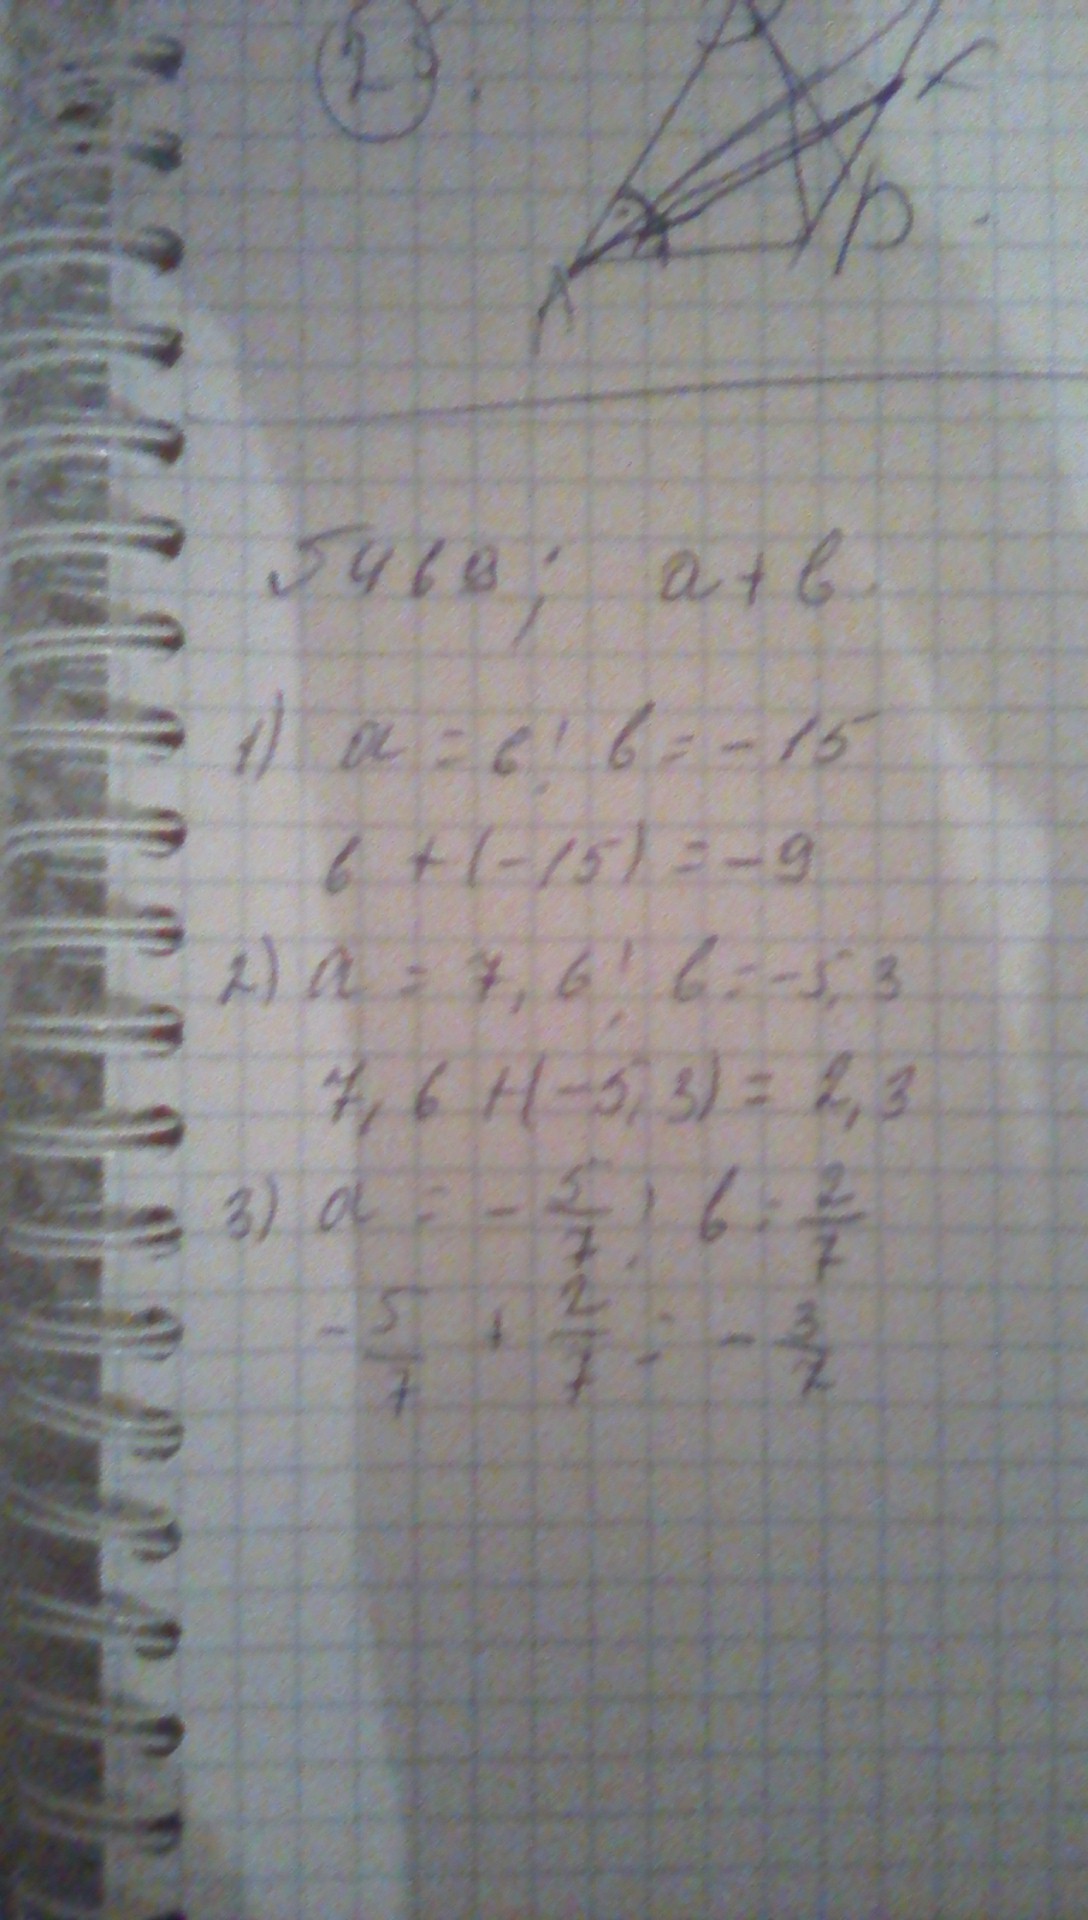 2
A
D
a + b
1) a = 6; b = -15
6 + (-15) = -9
2) a = 7,6; b = -5,3
7,6 + (-5,3) = 2,3
3) a = -5/7; b = 2/7
-5/7 + 2/7 = -3/7